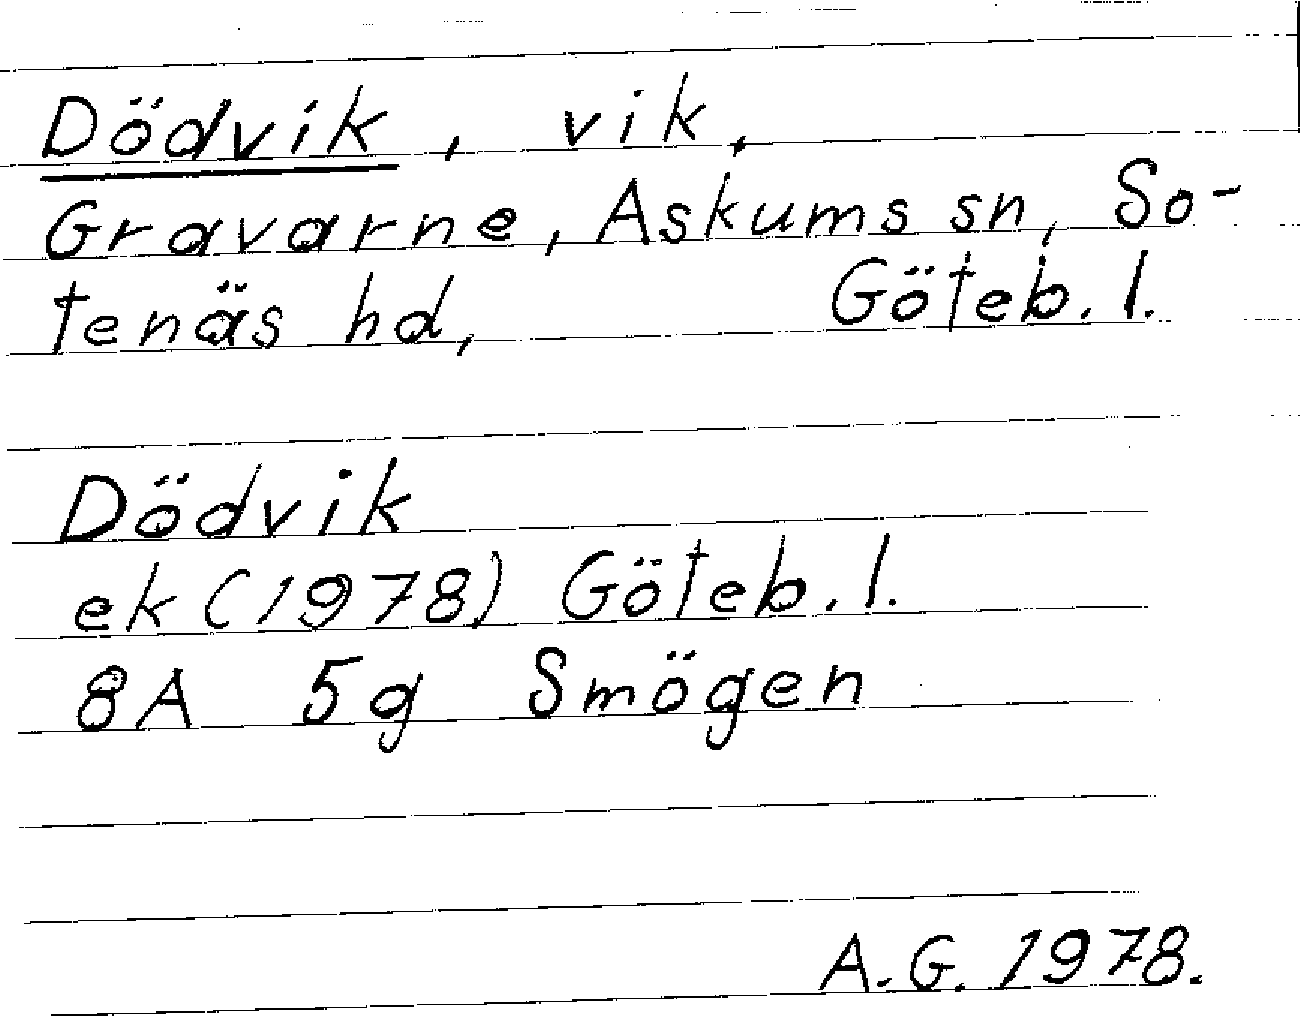 Dödvik, vik,
Gravarne, Askums sn, So-
tenäs hd, Göteb. l.
Dödvik
ek (1978) Göteb. l.
8A 5g Smögen
A.G. 1978.